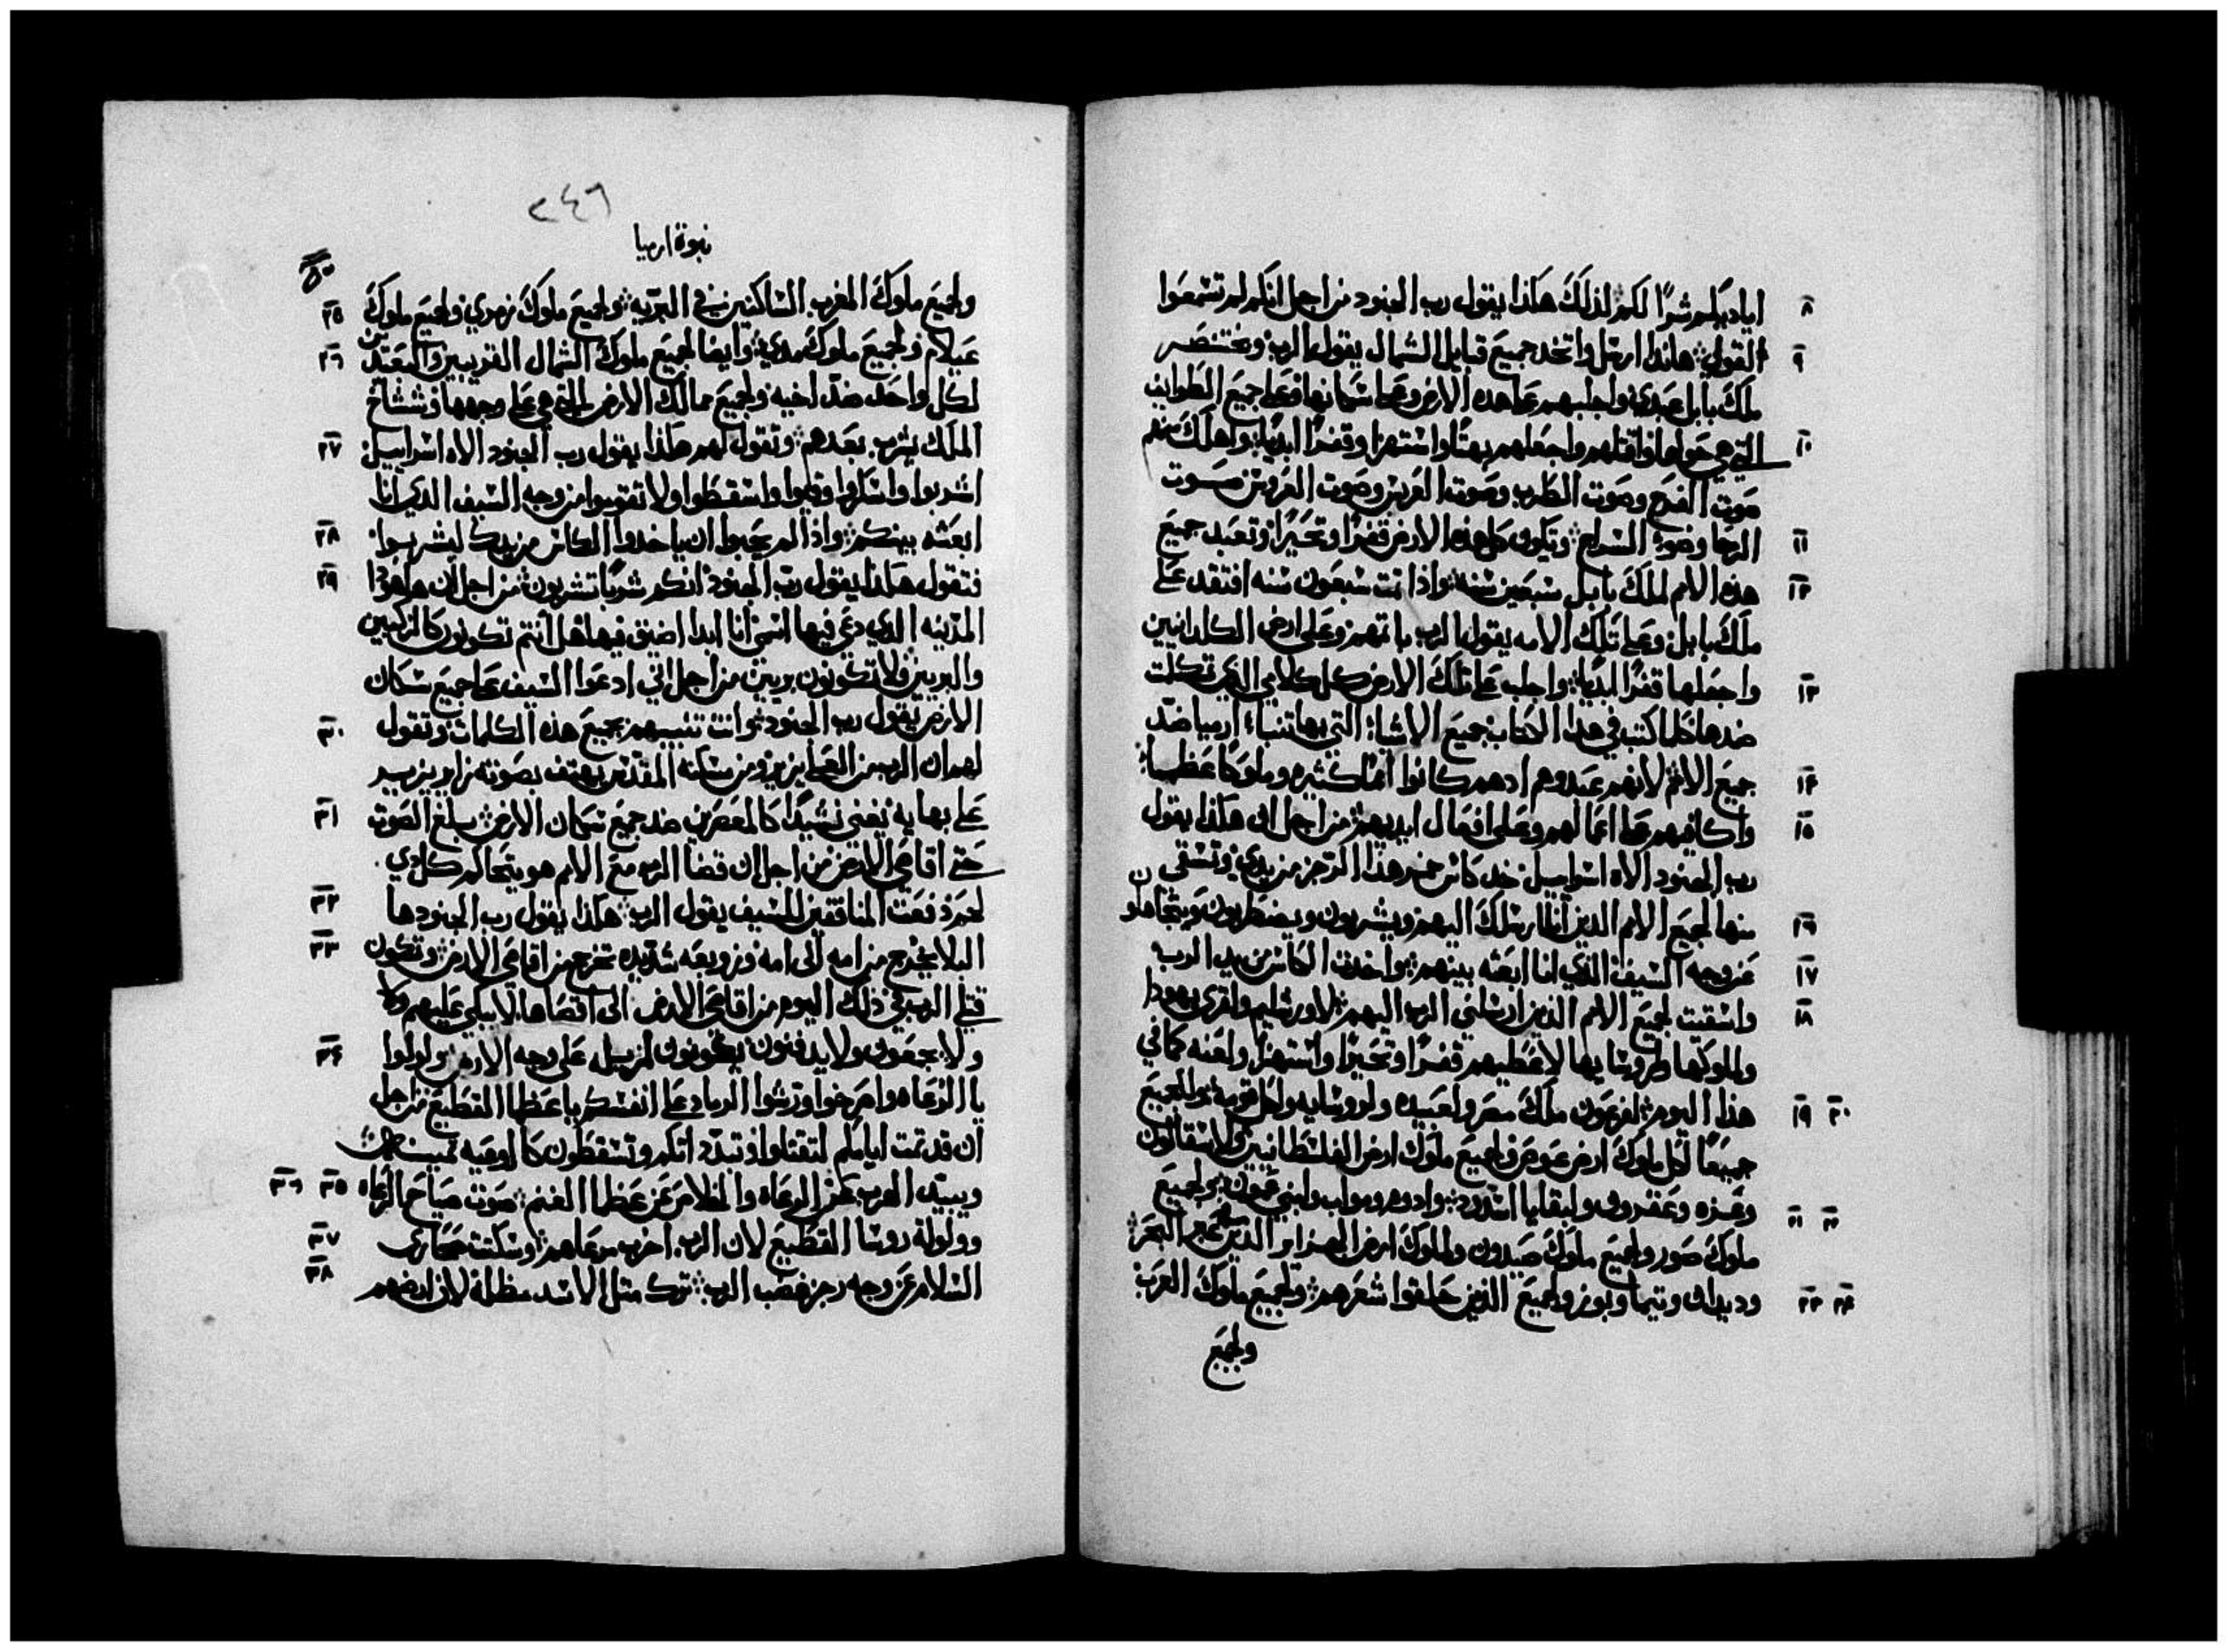 اياديكم شرًا لكم لذلك هكذا يقول رب الجنود من اجل انكم لم تسمعوا
٨
القول هاندا ارسل واتخد جميع قبايل الشمال يقول الرب وبختنصر
٩
ملك بابل عبدي واجلبهم على هده الارض وعلى سكانها وعلى جميع الطوايف
التي هي حولها واقتلهم واجعلهم بهتًا واستهزا وقفرًا ابديًا واهلك منهم
١٠
صوت الفرح وصوت الطرب وصوت العريس وصوت العروس صوت
الرحا وضوء السراج وتكون كل هذه الارض قفرًا وتحيرًا وتعبد جميع
١١
هذه الامم لملك بابل سبعين سنه واذا تمت سبعون سنه افتقد على
١٢
ملك بابل وعلى تلك الامه يقول الرب باثمهم وعلى ارض الكلدانيين
واجعلها قفرًا ابديًا واجلب على تلك الارض كل كلامي الذي تكلمت
١٣
ضدها كلما كتب في هدا الكتاب جميع الاشياء التي بها تنباء ارميا ضد
جميع الامم لانهم عبدوهم ادهم كانوا اممًا كثيره وملوكًا عظما
١٤
واكافيهم على اعمالهم وعلى افعال ايديهم من اجل ان هكذا يقول
١٥
رب الجنود الاه اسراييل خد كاس خمر هذا الرجز من يدي وتسقي
منها لجميع الامم الدين انا ارسلك اليهم ويشربون ويضطربون ويتجاهلون
١٦
عن وجه السيف الذي انا ابعثه بينهم واخدت الكاس من يد الرب
١٧
واسقيت لجميع الامم الذين ارسلني الرب اليهم لاورشليم ولقرى يهودا
١٨
ولملوكها وروسايها لاعطيهم قفرًا وتحيرًا واستهزا ولعنه كما في
هذا اليوم لفرعون ملك مصر ولعبيده ولروسايه ولكل قومه وللجميع
١٩ ٢٠
جميعًا لكل ملوك ارض عوص ولجميع ملوك ارض الفلسطانيين ولاسقالون
وغزه وعقرون ولبقايا اشدود وادوم ومواب ولبني عمون ولجميع
٢١ ٢٢
ملوك صور ولجميع ملوك صيدون ولملوك ارض الجزاير الدين عبر البحر
وديدان وتيما وبوز ولجميع الذين حلقوا شعرهم ولجميع ملوك العرب
٢٣ ٢٤
ولجميع
٢٤٦
نبوة ارميا
ولجميع ملوك المغرب الساكنين في البريه ولجميع ملوك زمري ولجميع ملوك
٢٥
عيلام ولجميع ملوك مدي وايضا لجميع ملوك الشمال القريبين والبعيدين
٢٦
لكل واحد ضد اخيه ولجميع ممالك الارض التي هي على وجهها وششاخ
الملك يشرب بعدهم وتقول لهم هكذا يقول رب الجنود الاه اسراييل
٢٧
اشربوا واسكروا وقيوا واسقطوا ولا تقوموا من وجه السيف الدي انا
ابعثه بينكم واذا لم يحبوا ان ياخدوا الكاس من يدك ليشربوا
٢٨
فتقول هكذا يقول رب الجنود انكم شربًا تشربون من اجل ان هاهوذا
٢٩
المدينه الدي دعي فيها اسمي انا ابدا اضيق فيها هل انتم تكونون كالزكيين
والبريين ولا تكونون بريين من اجل اني ادعوا السيف على جميع سكان
الارض يقول رب الجنود وانت تنبيهم بجميع هذه الكلمات وتقول
٣٠
لهم ان الرب من العلا يزير ومن مسكنه المقدس يهتف بصوته زاير يزير
على بهايه يغني نشيدًا كالمعصرين ضد جميع سكان الارض يبلغ الصوت
٣١
حتى اقاصي الارض من اجل ان قضا الرب مع الامم هو يتحاكم كل دي
لحم دفعت المنافقين للسيف يقول الرب هكذا يقول رب الجنود ها
٣٢
البلا يخرج من امه الى امه وزوبعه شديده تخرج من اقاصي الارض وتكون
٣٣
قتلى الرب في ذلك اليوم من اقاصي الارض الى اقصاها لا يبكى عليهم ولا
ولا يجمعون ولا يدفنون يكونون لزبل على وجه الارض ولولوا
٣٤
يا الرعاه واصرخوا ورشوا الرماد على انفسكم يا عظما القطيع من اجل
ان قد تمت ايامكم لتقتلوا وتبددانكم وتسقطون كالاوعيه
ويبيد الهرب عن الرعاه والخلاص عن عظما الغنم صوت صياح الرعاه
٣٥ ٣٦
وولولة روسا القطيع لان الرب اخرب مرعاهم وسكتت صحارى
٣٧
السلام عن وجه رجز غضب الرب ترك مثل الاسد مظلة لان ارضهم
٣٨